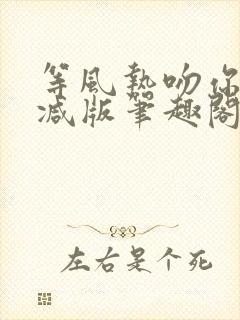 等風熱吻你
减版筆趣閣
左右是个死